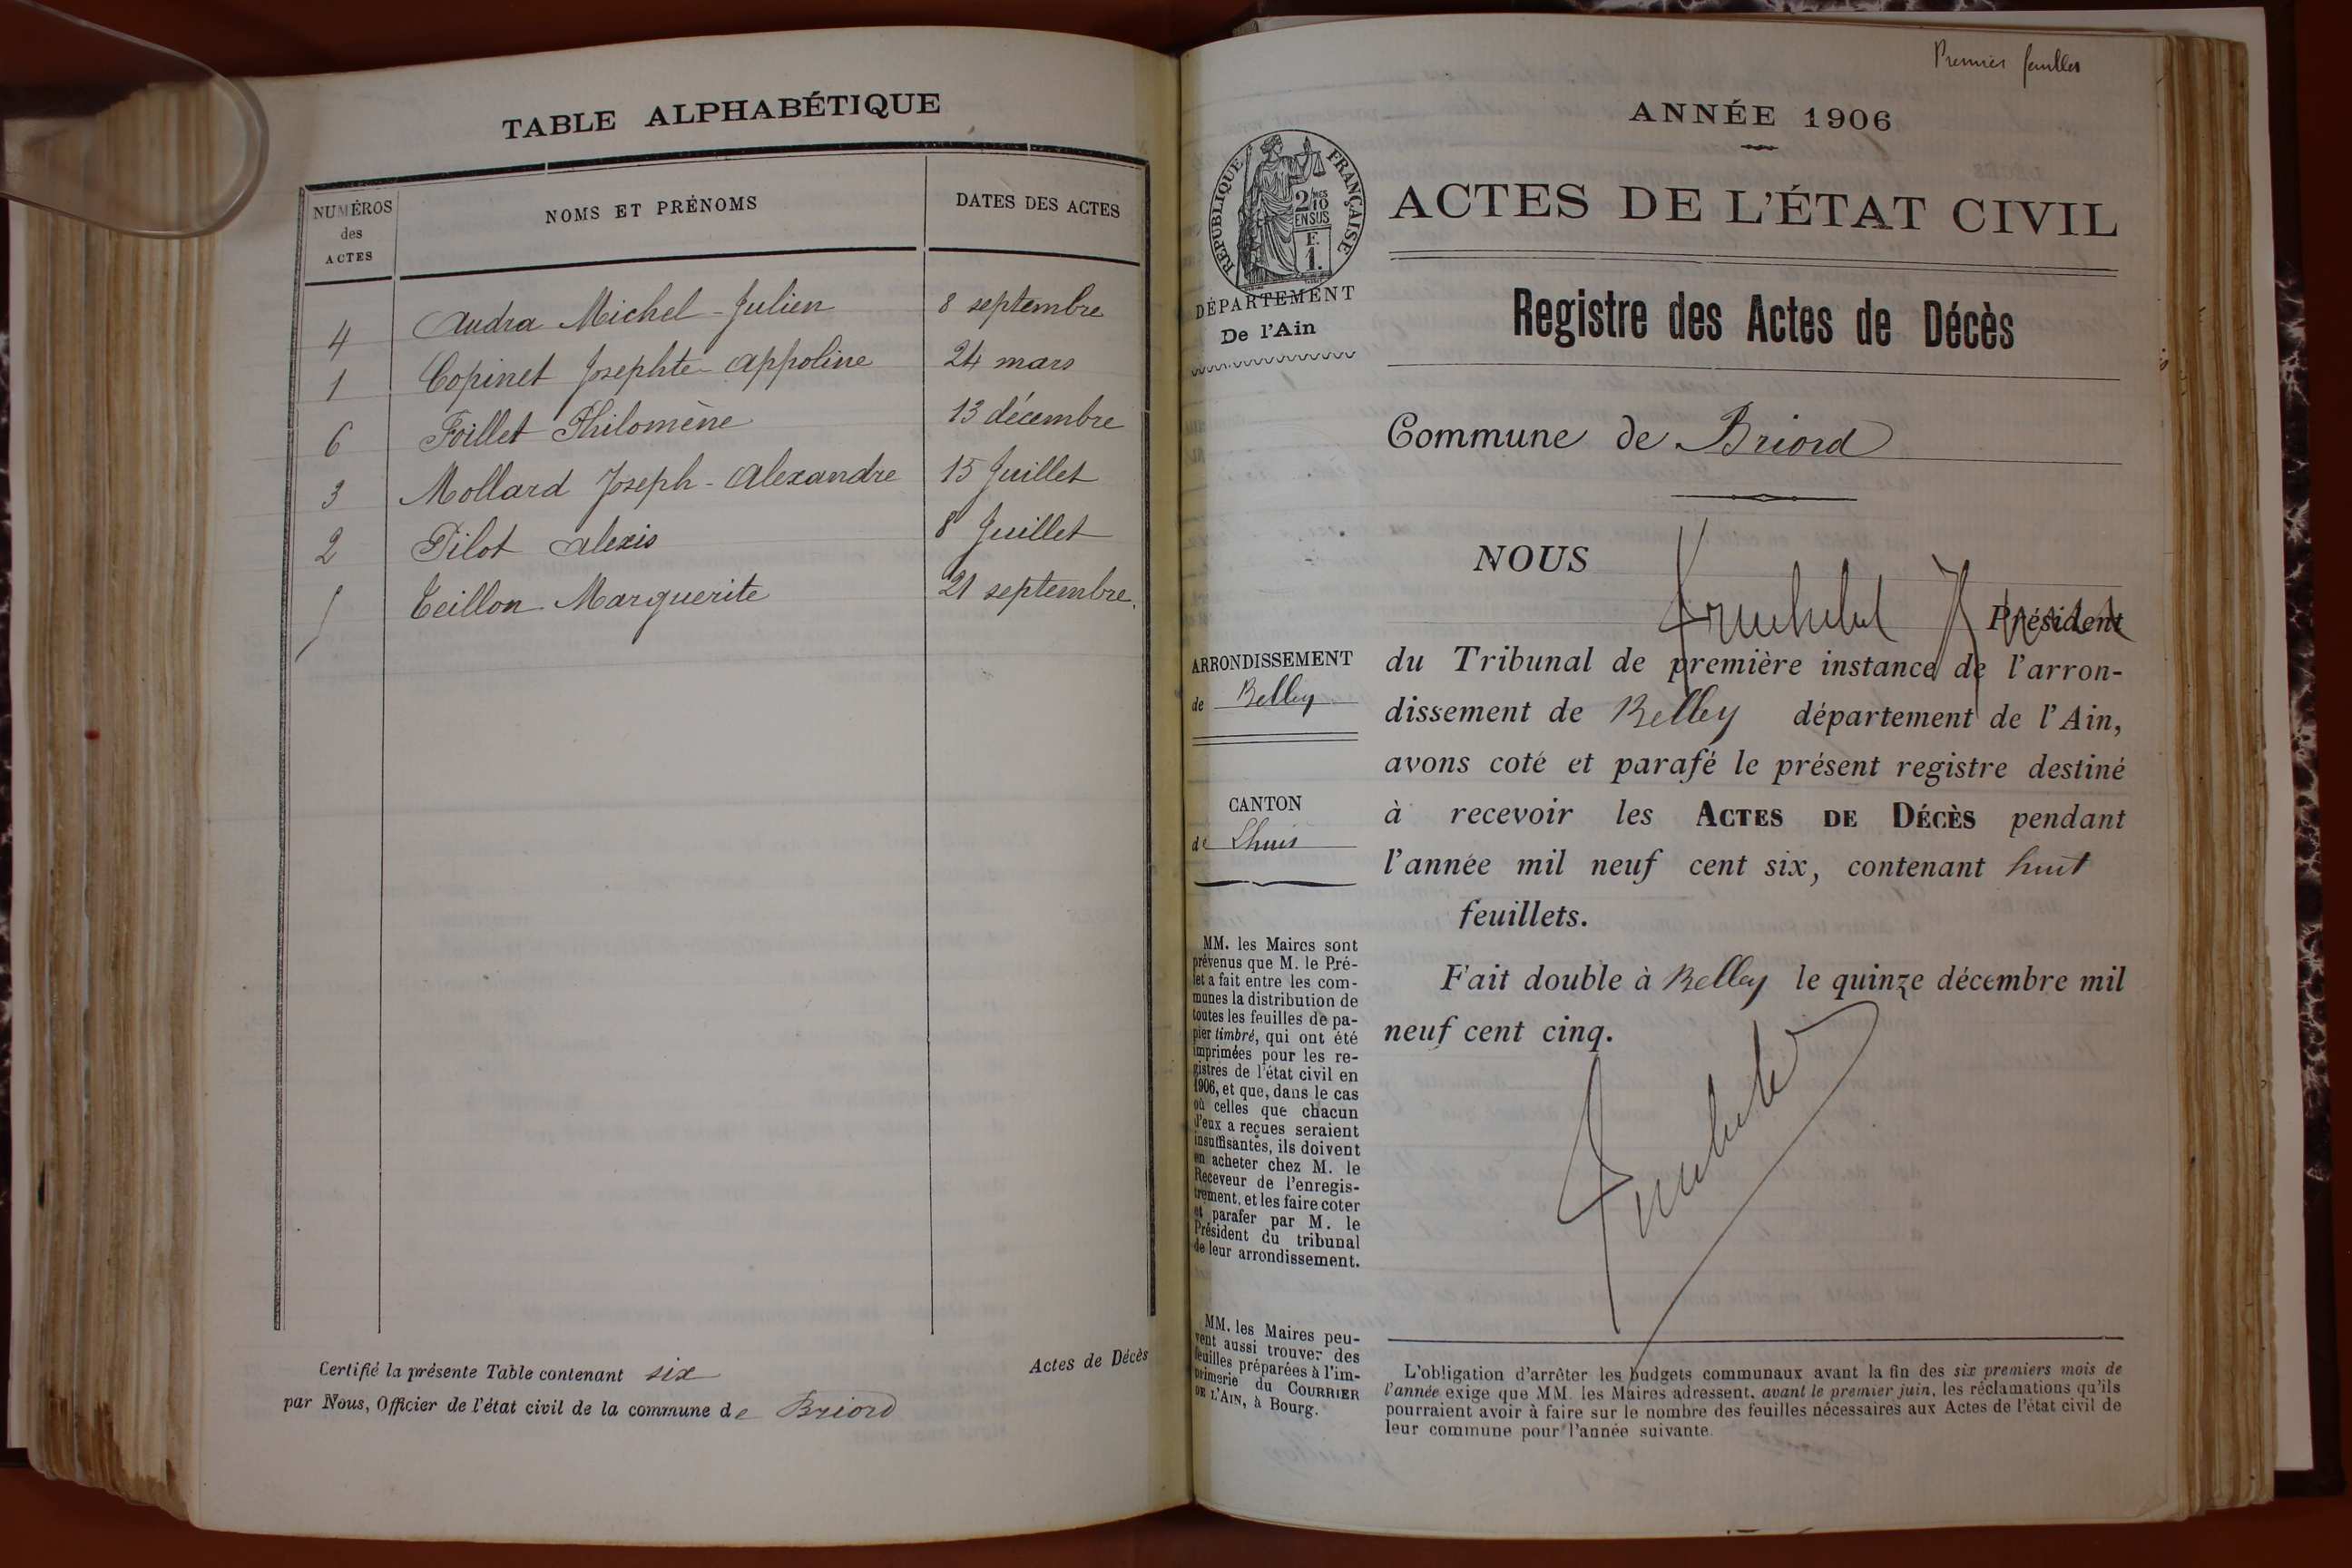 TABLE ALPHABÉTIQUE
NUMÉROS des ACTES
NOMS ET PRÉNOMS
DATES DES ACTES
4 Audra Michel-Julien 8 septembre
1 Copinet Josephte-Appoline 24 mars
6 Foillet Philomène 13 décembre
3 Mollard Joseph-Alexandre 15 Juillet
2 Pilot Alexis 8 Juillet
5 Teillon Marguerite 21 septembre.
Certifié la présente Table contenant six
par Nous, Officier de l'état civil de la commune de Briord
Actes de Décès
Premier feuillet
ANNÉE 1906
RÉPUBLIQUE FRANÇAISE
2/10 MES
EN SUS
F.
1.
DÉPARTEMENT
De l'Ain
ACTES DE L'ÉTAT CIVIL
Registre des Actes de Décès
Commune de Briord
NOUS
Président
du Tribunal de première instance de l'arron-
dissement de Belley département de l'Ain,
avons coté et parafé le présent registre destiné
à recevoir les ACTES DE DÉCÈS pendant
l'année mil neuf cent six, contenant huit
feuillets.
Fait double à Belley le quinze décembre mil
neuf cent cinq.
ARRONDISSEMENT
de Belley
CANTON
de Lhuis
MM. les Maires sont
prévenus que M. le Pré-
fet a fait entre les com-
munes la distribution de
toutes les feuilles de pa-
pier timbré, qui ont été
imprimées pour les re-
gistres de l'état civil en
1906, et que, dans le cas
où celles que chacun
d'eux a reçues seraient
insuffisantes, ils doivent
en acheter chez M. le
Receveur de l'enregis-
trement, et les faire coter
et parafer par M. le
Président du tribunal
de leur arrondissement.
MM. les Maires peu-
vent aussi trouver des
feuilles préparées à l'im-
primerie du COURRIER
DE L'AIN, à Bourg.
L'obligation d'arrêter les budgets communaux avant la fin des six premiers mois de
l'année exige que MM. les Maires adressent, avant le premier juin, les réclamations qu'ils
pourraient avoir à faire sur le nombre des feuilles nécessaires aux Actes de l'état civil de
leur commune pour l'année suivante.